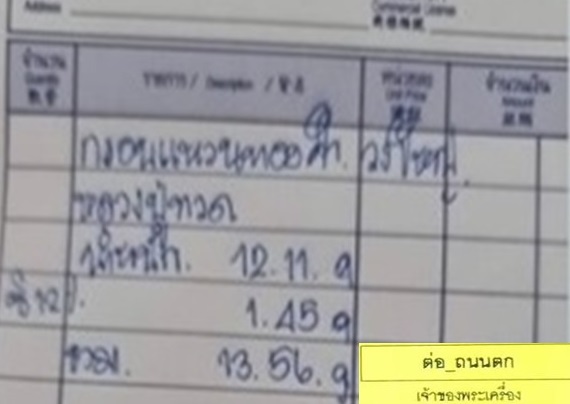 Address
Commercial License
จำนวน
Quantity
数量
รายการ / Description / 货名
หน่วยละ
Unit Price
จำนวนเงิน
Amount
กรอบแหวนทองคำ. วงใหญ่
หลวงปู่ทวด
น้ำหนัก. 12.11. g
1.45 g
รวม. 13.56. g
ต่อ_ถนนตก
เจ้าของพระเครื่อง